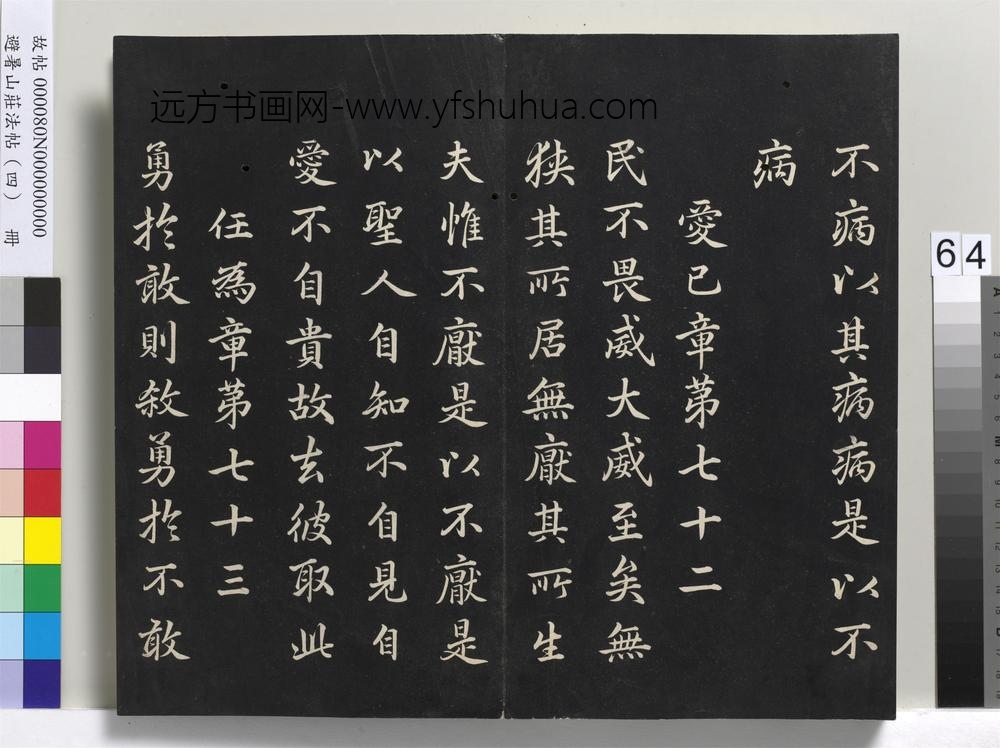 不病以其病病是以不
病
愛已章第七十二
民不畏威大威至矣無
狹其所居無厭其所生
夫惟不厭是以不厭是
以聖人自知不自見自
愛不自貴故去彼取此
任為章第七十三
勇於敢則殺勇於不敢
远方书画网-www.yfshuhua.com
故帖 000080N000000000
避暑山莊法帖(四) 冊
64